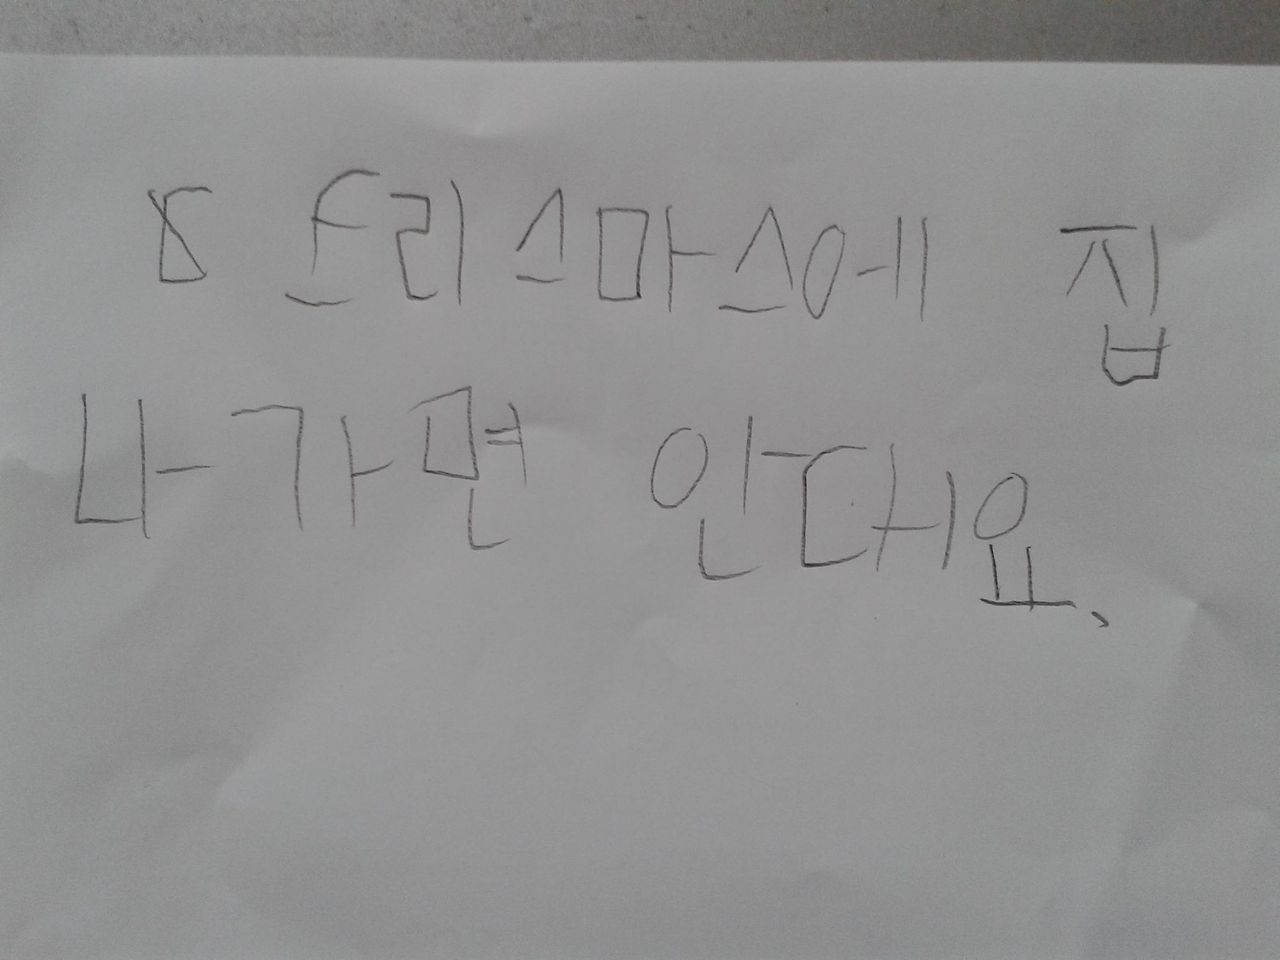 8 트리스마스에 집
나가면 안대요.